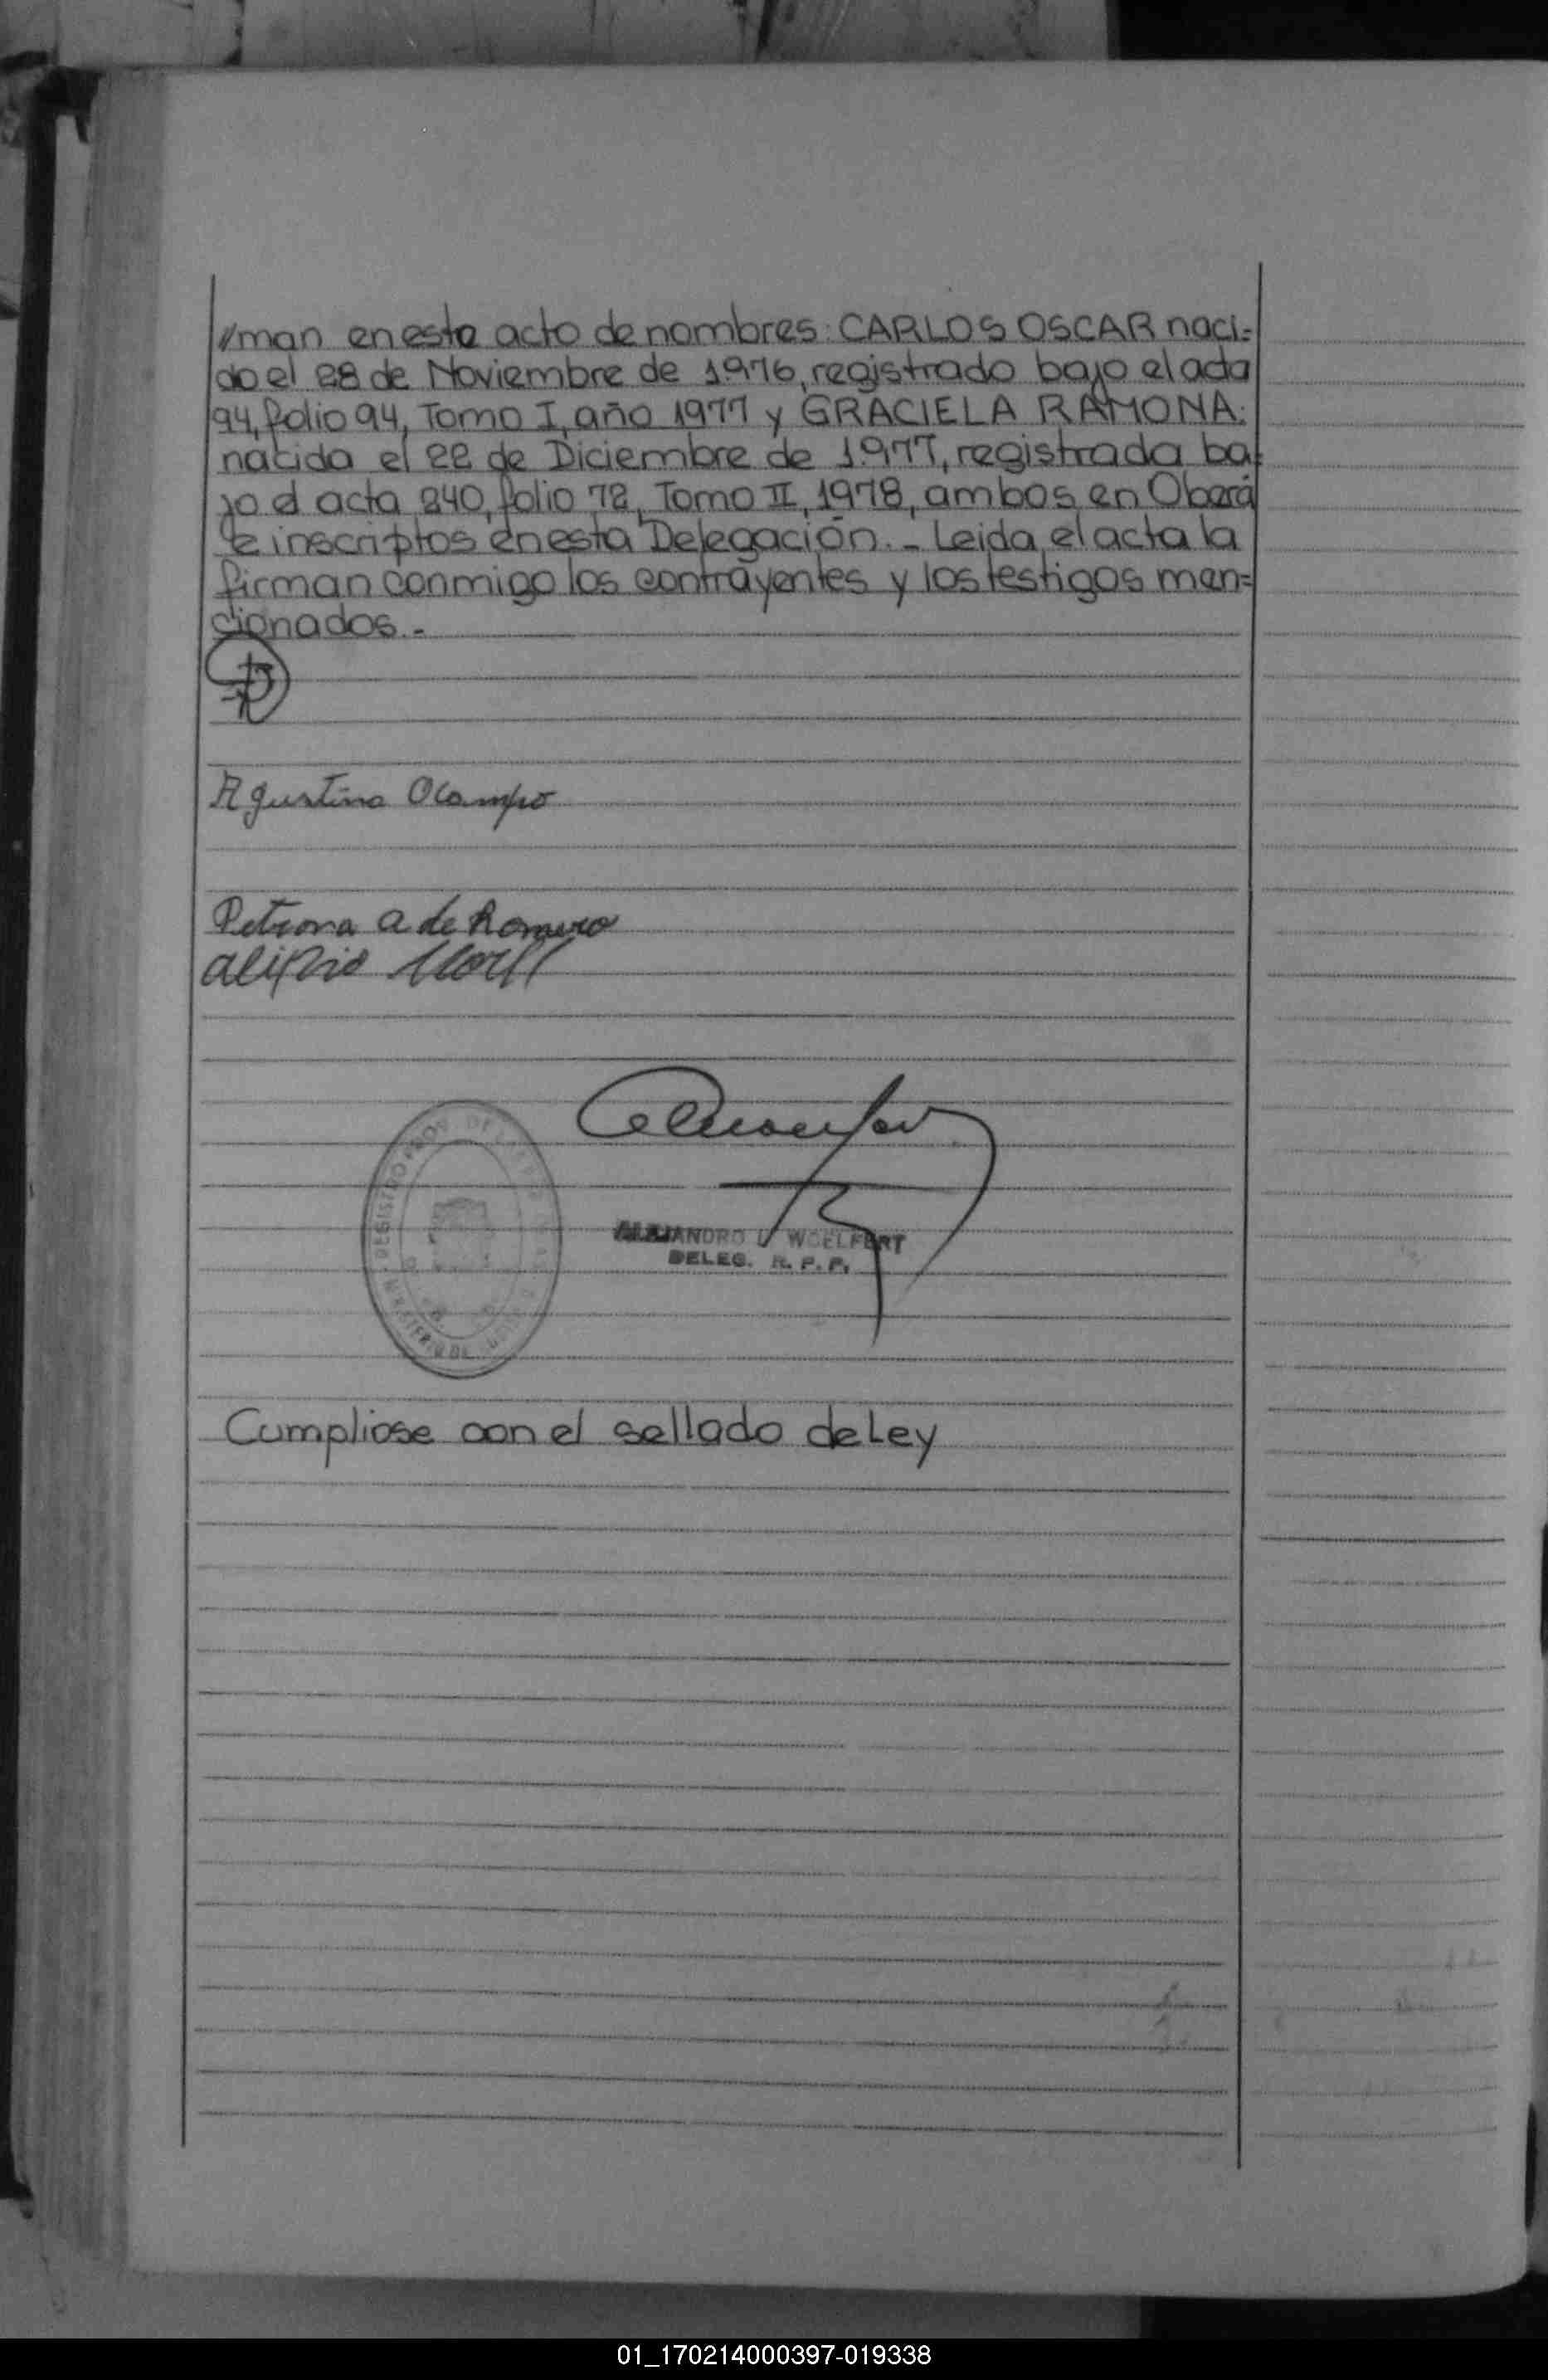 //man en este acto de nombres: CARLOS OSCAR naci=
do el 28 de Noviembre de 1.976, registrado bajo el acta
94, folio 94, Tomo I, año 1977 y GRACIELA RAMONA:
nacida el 22 de Diciembre de 1.977, registrada ba=
jo el acta 240, folio 72, Tomo II, 1978, ambos en Oberá
e inscriptos en esta Delegación. - Leida el acta la
firman conmigo los contrayentes y los testigos men=
cionados. -
Agustina Ocampo
Petrona a de Romero
alipio
REGISTRO PROV. DE
MINISTERIO DE
ALEJANDRO L. WOELFERT
DELEG. R. P. P.
Cumpliose con el sellado de Ley
01_170214000397-019338